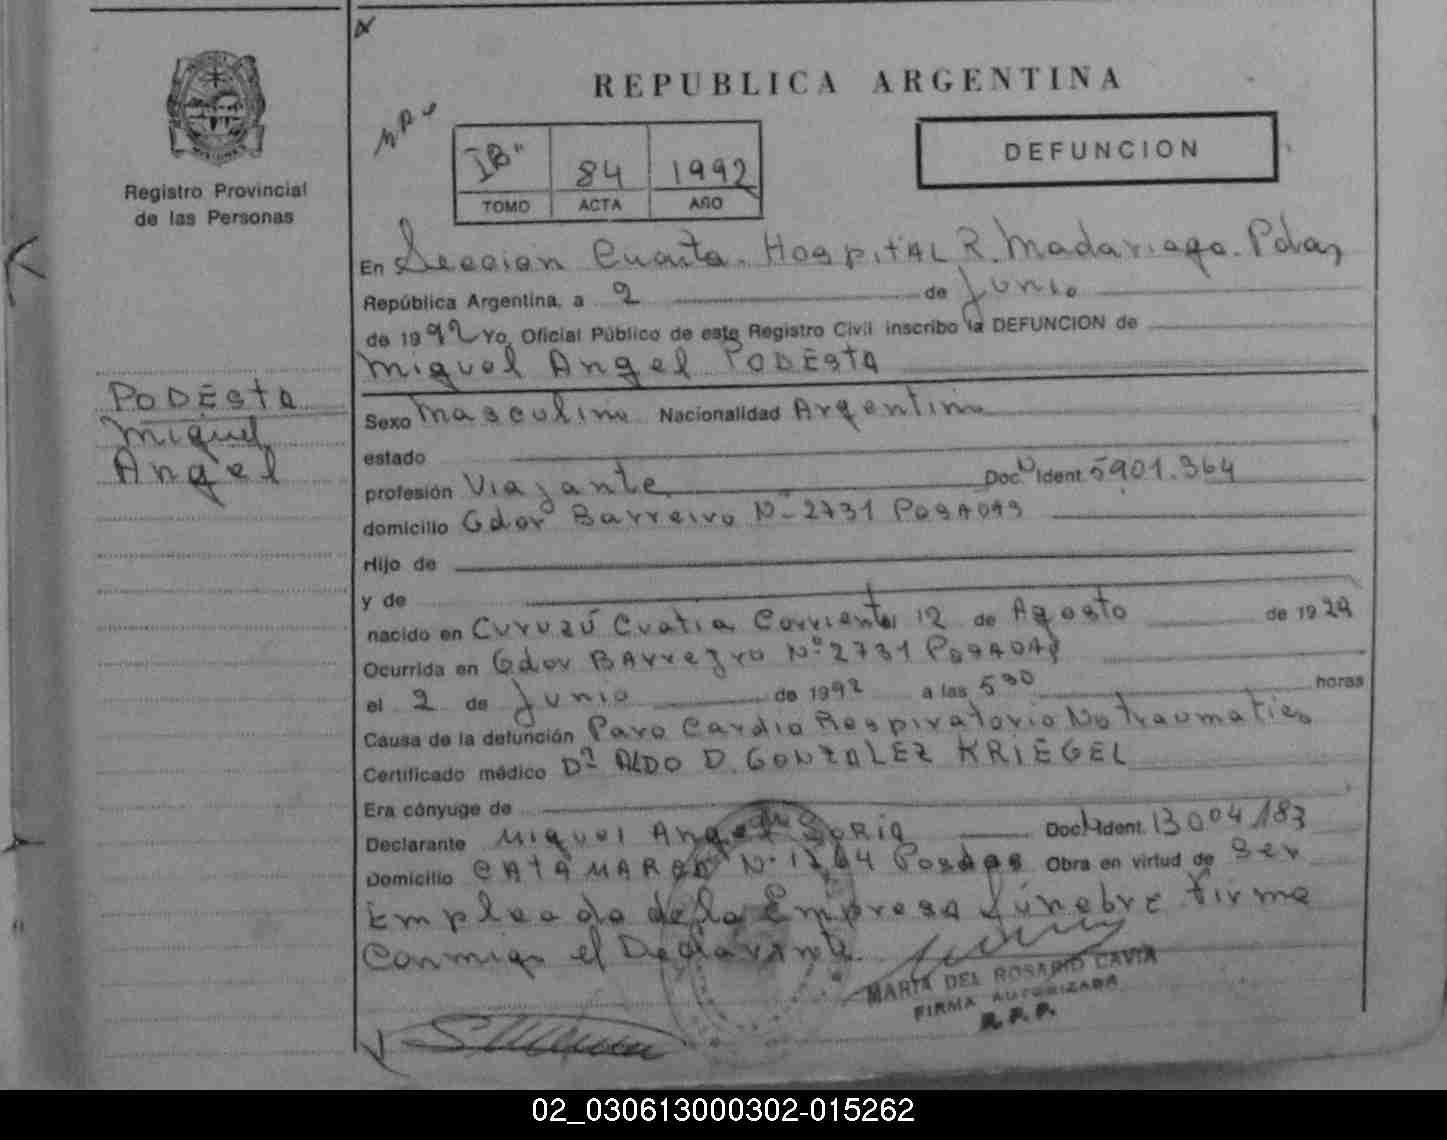 REPUBLICA ARGENTINA
Registro Provincial
de las Personas
IB" 84 1992
TOMO ACTA AÑO
DEFUNCION
En Seccion Cuarta. Hospital R. Madariaga. Pdas,
República Argentina, a 2 de Junio
de 1992 Yo, Oficial Público de este Registro Civil inscribo la DEFUNCION de
Miguel Angel PODESTA
PODESTA
Miguel
Angel
Sexo Masculino Nacionalidad Argentino
estado
profesión Viajante Doc. Ident. 5901.364
domicilio Gdor Barreiro Nº 2731 Posadas
Hijo de
y de
nacido en Curuzú Cuatia Corrientes 12 de Agosto de 1929
Ocurrida en Gdor Barreyro Nº 2731 Posadas
el 2 de Junio de 1992 a las 530 horas
Causa de la defunción Paro Cardio Respiratorio No traumatico
Certificado médico Dr ALDO D. GONZALEZ KRIEGEL
Era cónyuge de
Declarante Miguel Angel Soria Doc. Ident. 13004183
Domicilio CATAMARCA Nº Posadas Obra en virtud de Ser
Empleado de la Empresa Fúnebre firma
Conmigo el Declarante.
MARIA DEL ROSARIO CAVIA
FIRMA AUTORIZADA
R.P.P.
02_030613000302-015262